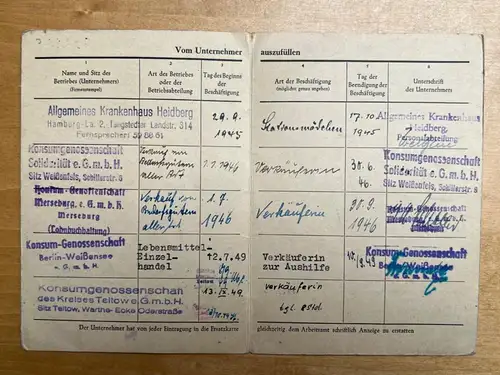 Vom Unternehmer auszufüllen
1 2 3 4 5 6
Name und Sitz des Betriebes (Unternehmers) (Firmenstempel)
Art des Betriebes oder der Betriebsabteilung
Tag des Beginns der Beschäftigung
Art der Beschäftigung (möglichst genau angeben)
Tag der Beendigung der Beschäftigung
Unterschrift des Unternehmers
Allgemeines Krankenhaus Heidberg
Hamburg-La. 2, Tangstedter Landstr. 314
Fernsprecher:
29.9.
1945
Stationsmädchen
17.10
1945
Allgemeines Krankenhaus
Heidberg
Personalabteilung
Konsumgenossenschaft
Solidarität e.G.m.b.H.
Sitz Weißenfels, Schillerstr. 8
aller Art
1.1.1946
Verkäuferin
30.6.
46.
Konsumgenossenschaft
Solidarität e.G.m.b.H.
Sitz Weißenfels, Schillerstr. 8
Konsum-Genossenschaft
Merseburg e.G.m.b.H.
Merseburg
(Lohnbuchhaltung)
Verkauf von
aller Art
1.7.
1946
Verkäuferin
28.9.
1946
Konsum-Genossenschaft
Berlin-Weißensee
e.G.m.b.H.
Lebensmittel-
Einzel-
handel
12.7.49
Verkäuferin
zur Aushilfe
Konsum-Genossenschaft
Berlin-Weißensee
Konsumgenossenschaft
des Kreises Teltow e.G.m.b.H.
Sitz Teltow, Warthe- Ecke Oderstraße
Teltow
49.
Verkäuferin
Der Unternehmer hat von jeder Eintragung in die Ersatzkarte gleichzeitig dem Arbeitsamt schriftlich Anzeige zu erstatten